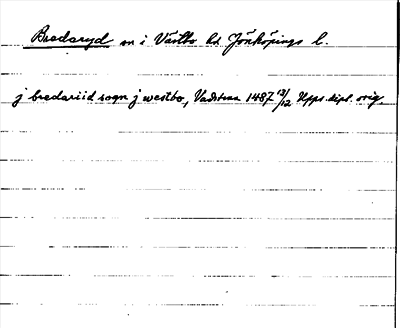 Bredaryd sn i Västbo hd Jönköpings l.
j bredariid sogn j westbo, Vadstena 1487 13/12 Upps. dipl. orig.